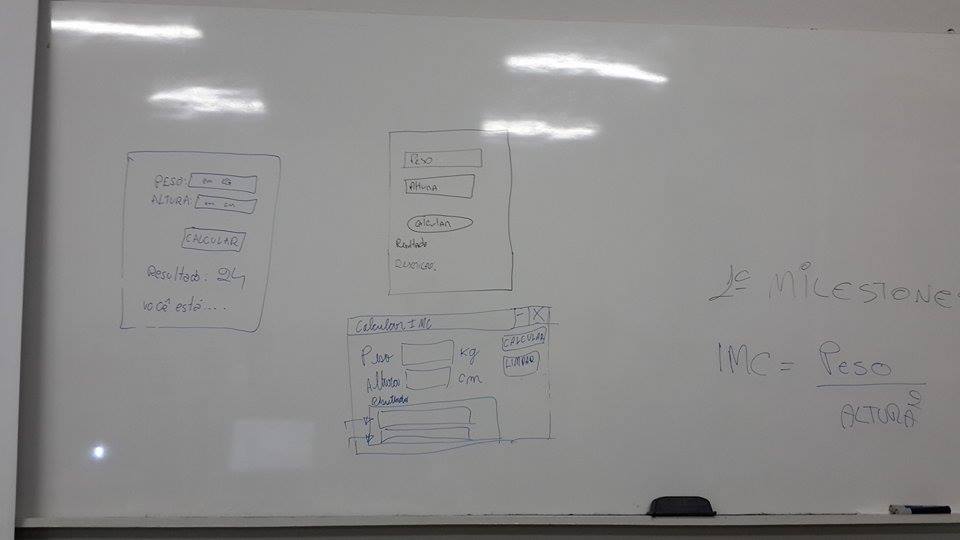 PESO: em KG
ALTURA: em cm
CALCULAR
Resultado: 24
você está....
Peso
Altura
Calcular
Resultado
Descrição.
Calcular IMC - X
Peso kg
Altura cm
CALCULAR
LIMPAR
Resultado
1º MILESTONES
IMC = Peso
ALTURA²